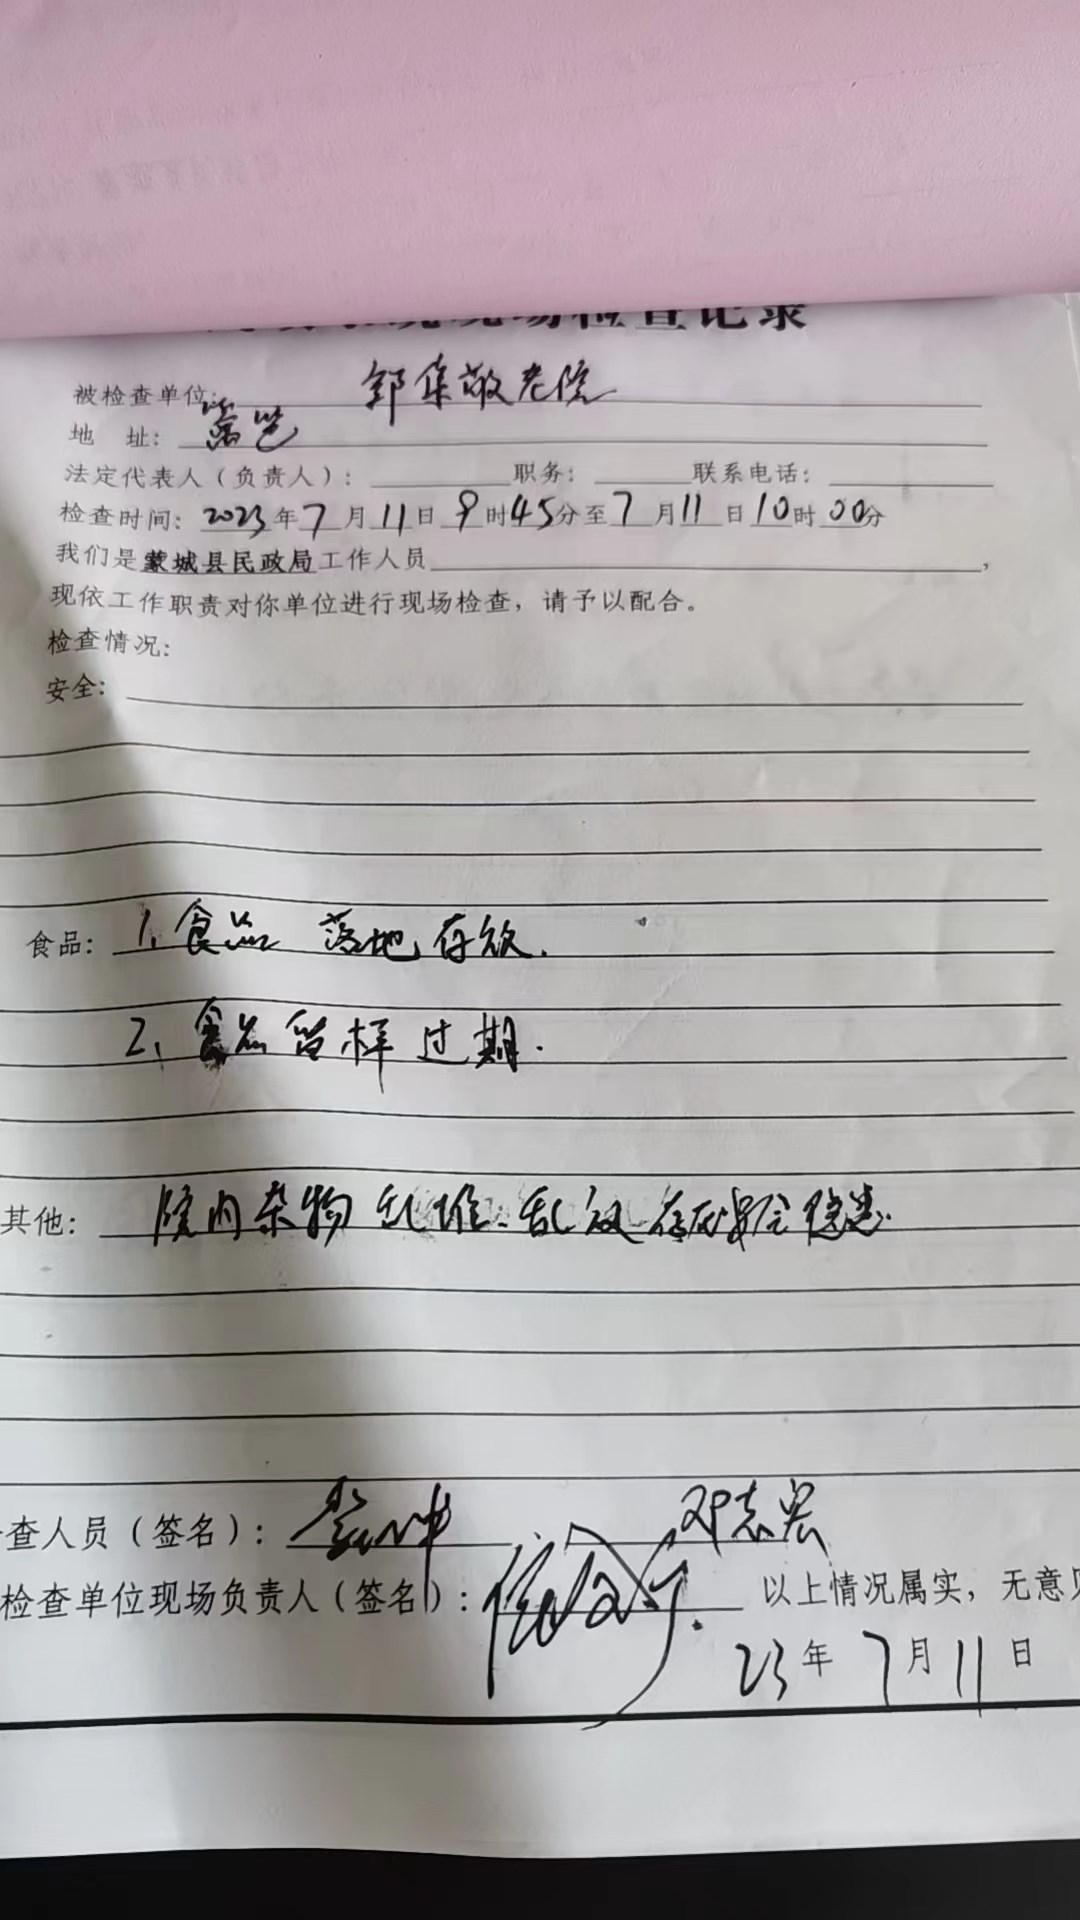 现场检查记录
被检查单位: 郭集敬老院
地 址:
法定代表人(负责人): 职务: 联系电话:
检查时间: 2023年7月11日9时45分至7月11日10时00分
我们是蒙城县民政局工作人员,
现依工作职责对你单位进行现场检查,请予以配合。
检查情况:
安全:
食品: 1、食品 落地存放.
2、食品留样过期.
其他: 院内杂物乱堆、乱放存在安全隐患.
查人员(签名): 邓志宏
检查单位现场负责人(签名): 以上情况属实,无意见
23年7月11日